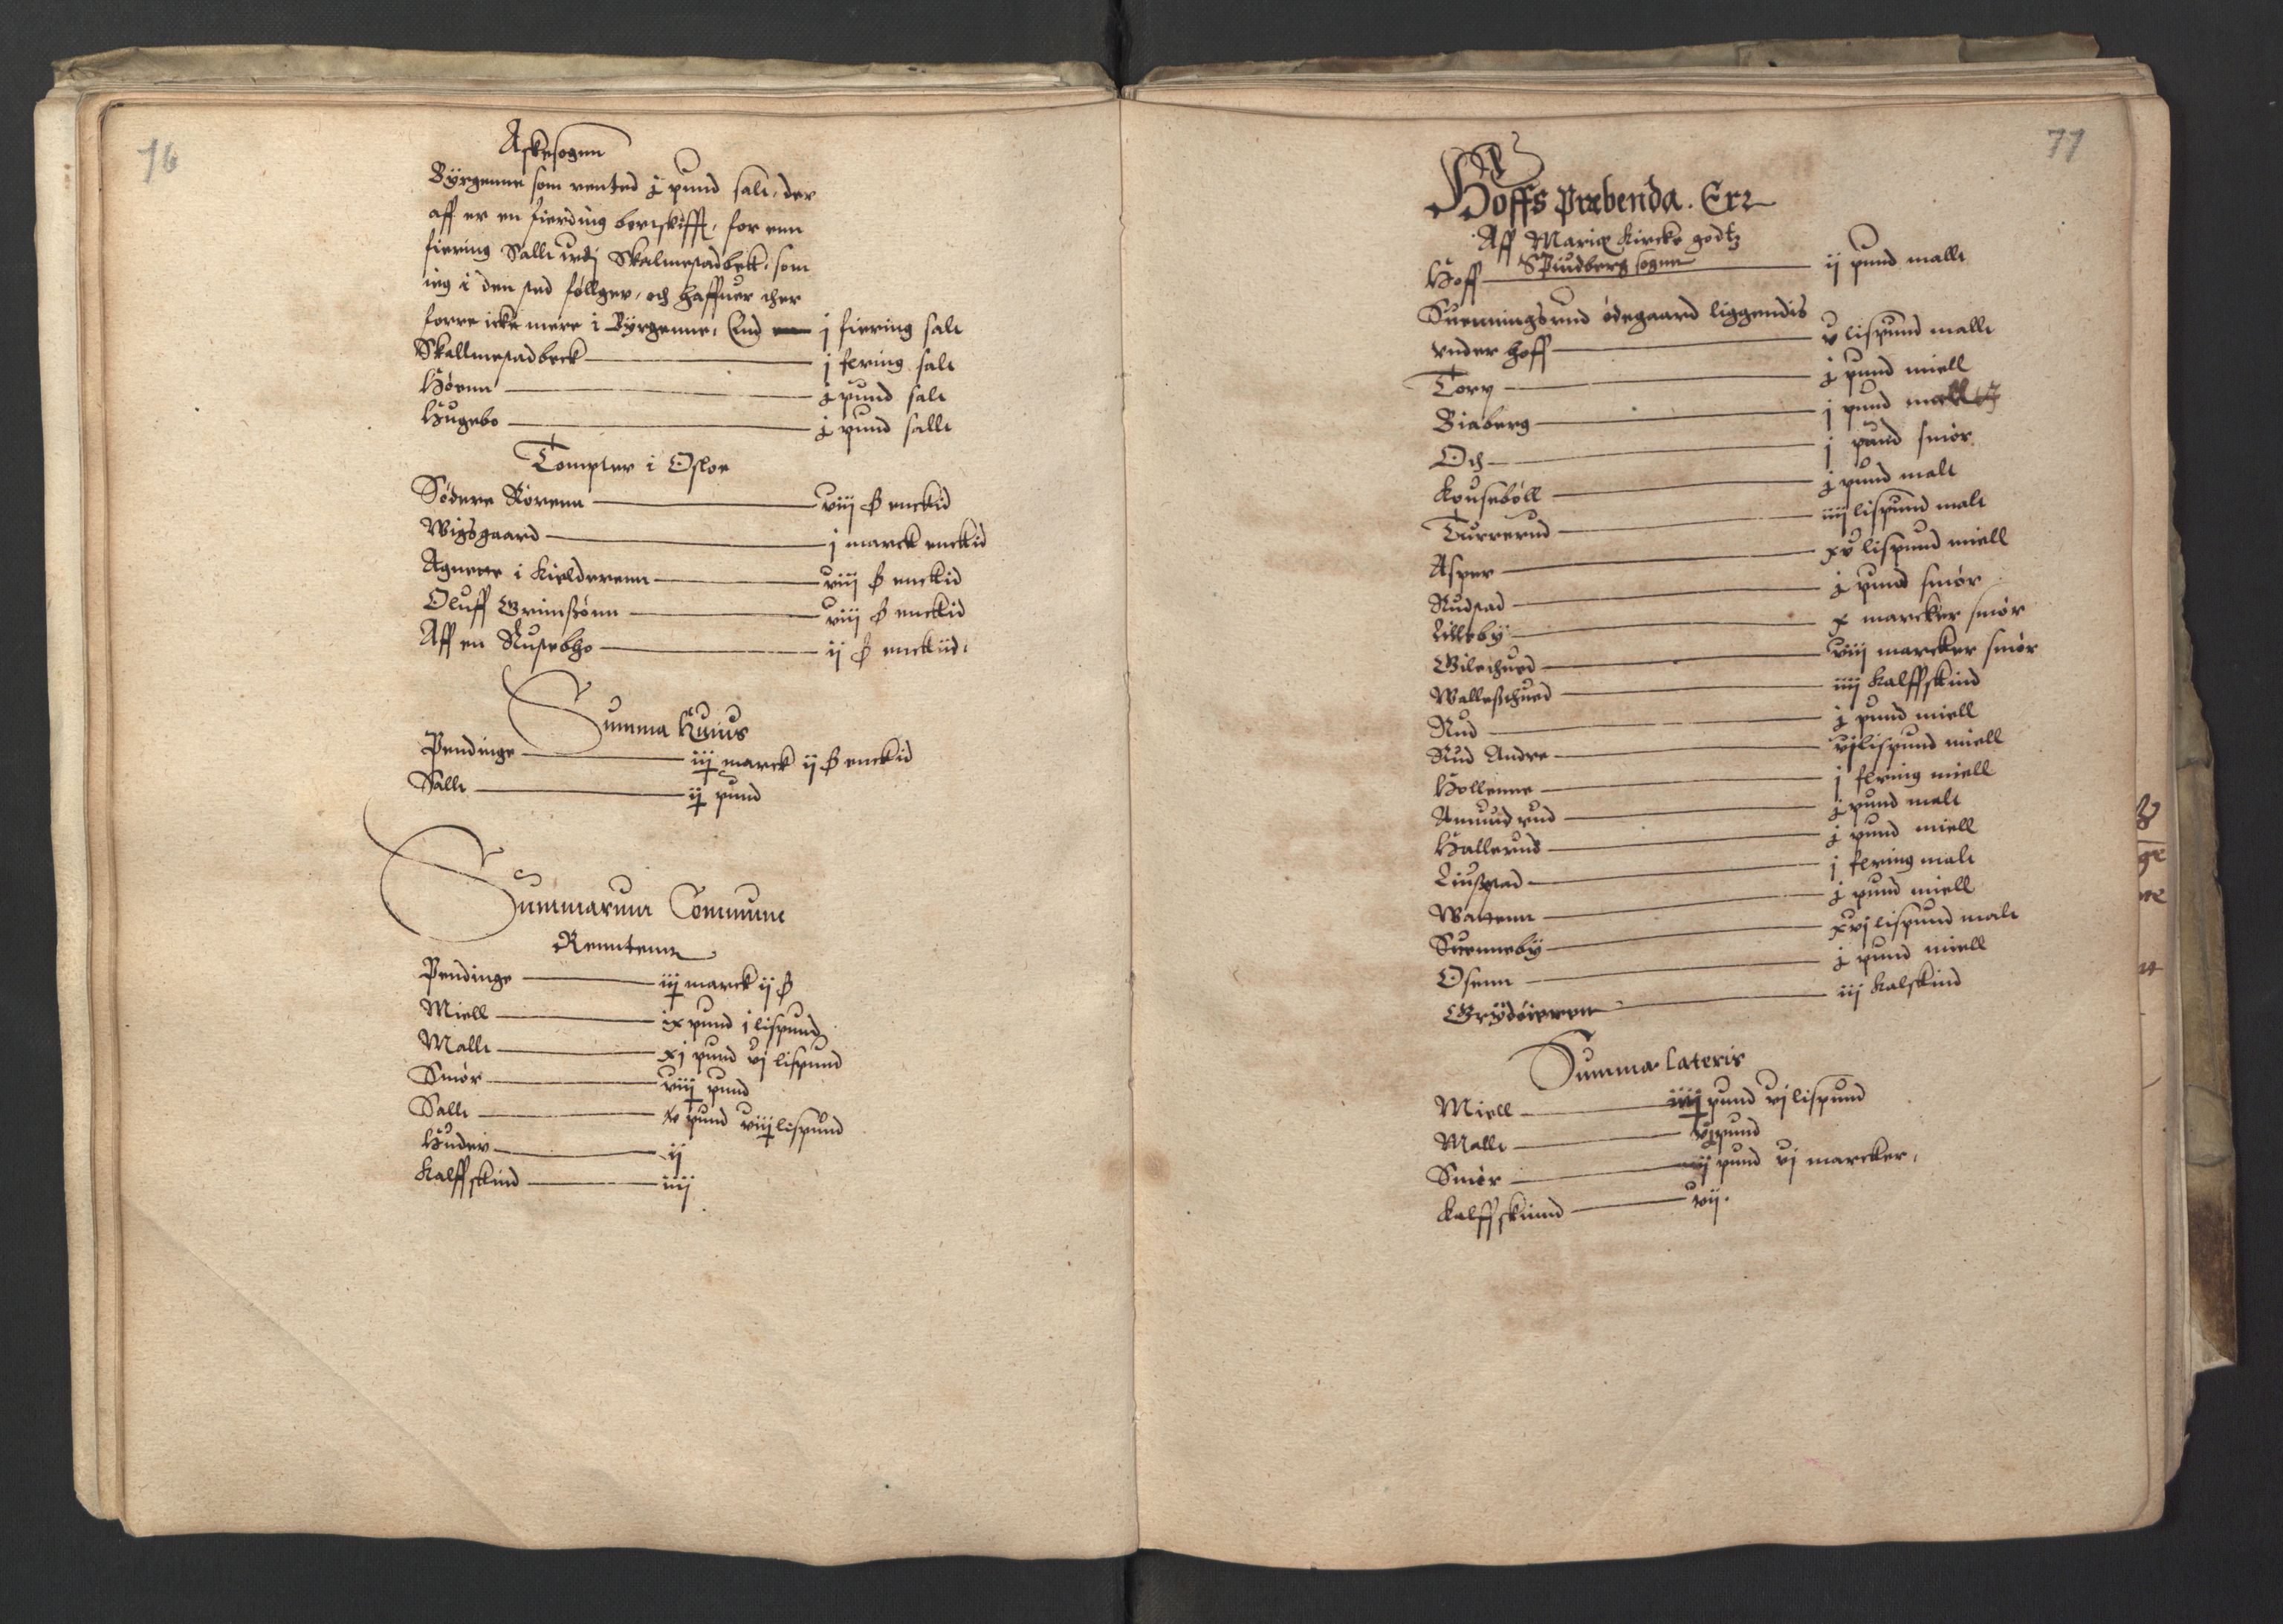 76
Askesogen
Byrgenne som rented j pund salt, der
aff er en fierding bortskifft, for enn
fiering Sallt udj Skalmestadbeck, som
ieg i den sted føllger, och haffuer ther
forre icke mere i Byrgenne, End j fiering salt
Skallmestadbeck j fering salt
Høenn j pund salt
Hugebo j pund sallt
Tompter i Osloe
Södere Rörenn viij ß enckid
Wigsgaard j marck enckid
Agnette i Kielderenn viij ß enckid
Oluff Grimssönn viij ß enckid
Aff en Rustebho ij ß enckiid
Summa Huius
Pendinge iij marck ij ß enckid
Sallt ij pund
Summarum Commune
Renntenn
Pendinge iij marck ij ß
Miell ix pund j lispund
Mallt xj pund vj lispund
Smör viij pund
Sallt v pund viij lispund
Huder ij
Kalffskind iiij
77
Hoffs Præbenda. Er
Aff Mariæ Kircke godtz
Spiudberg sogen
Hoff ij pund mallt
Suenningsrud ödegaard liggendis
vnder hoff v lispund mallt
Torp j pund miell
Biaberg j pund
Och j pund smör
Kouseböll j pund malt
Turrerud iiij lispund malt
Asper xv lispund miell
Rudstad j pund smör
Lilleby x marcker smör
Gilethued viij marcker smör
Wallessthued iiij kalffskind
Rud j pund miell
Rud Andre vj lispund miell
Hollenne j fering miell
Amund rud j pund malt
Hallerud j pund miell
Liusstad j fering malt
Wattenn j pund miell
Suenneby xvj lispund malt
Osenn j pund miell
Grydöieren iij kalskind
Summa Lateris
Miell iiij pund vj lispund
Mallt vj pund
Smör ij pund vj marcker,
Kalffskiind vij.